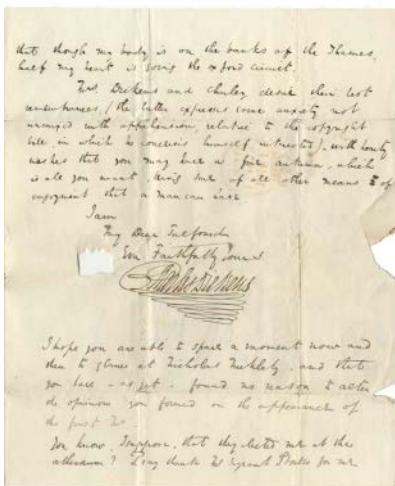 that though my body is on the banks of the Thames,
half my heart is going the Oxford circuit.
Mrs. Dickens and Charley desire their best
remembrances, (the latter expresses some anxiety not
unmixed with apprehension, relative to the copyright
bill, in which he conceives himself interested), with hearty
wishes that you may have a fine autumn, which
is all you want, being sure of all other means of
enjoyment that a man can have
I am
My Dear Talfourd
Ever Faithfully Yours
Charles Dickens
I hope you are able to spare a moment now and
then to glance at Nicholas Nickleby, and that
you have - as yet - found no reason to alter
the opinion you formed on the appearance of
the first No.
You know, I suppose, that they elected me at the
Athenaeum? Pray thank Mr Serjeant Storks for me